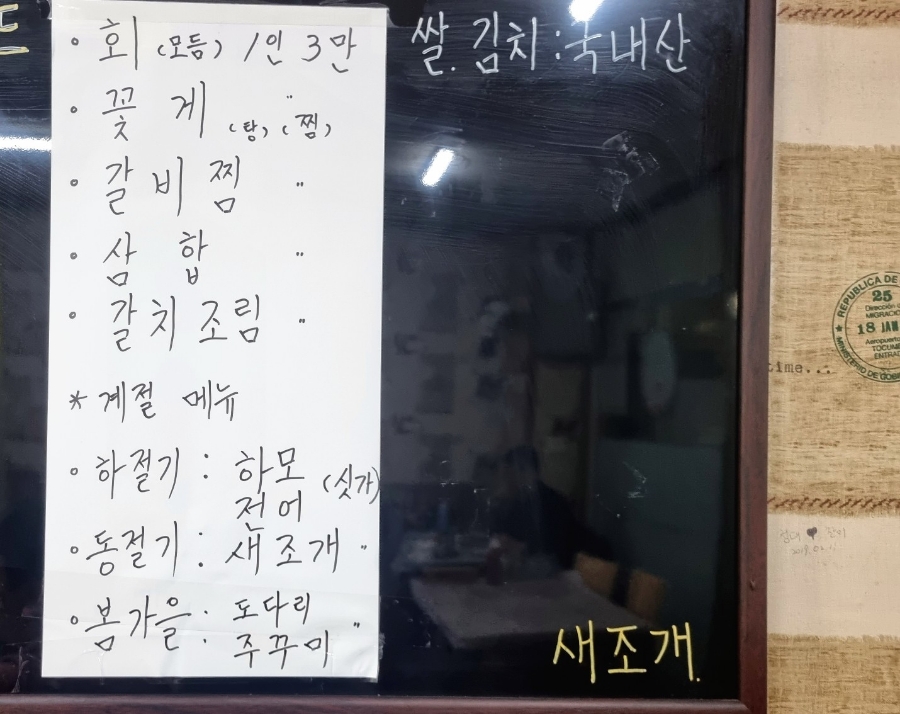 • 회 (모듬) 1인 3만
• 꽃 게 (탕) (찜) "
• 갈 비 찜 "
• 삼 합 "
• 갈 치 조 림 "
* 계절 메뉴
• 하절기 : 하모 (싯가)
전어
• 동절기 : 새 조 개 "
• 봄가을 : 도다리 "
주꾸미
쌀. 김치 : 국내산
새조개.
REPUBLICA DE
25
MIGRACIÓ
18 JAN
TOCUME
ENTRAD
MINISTERIO DE GOB
time...